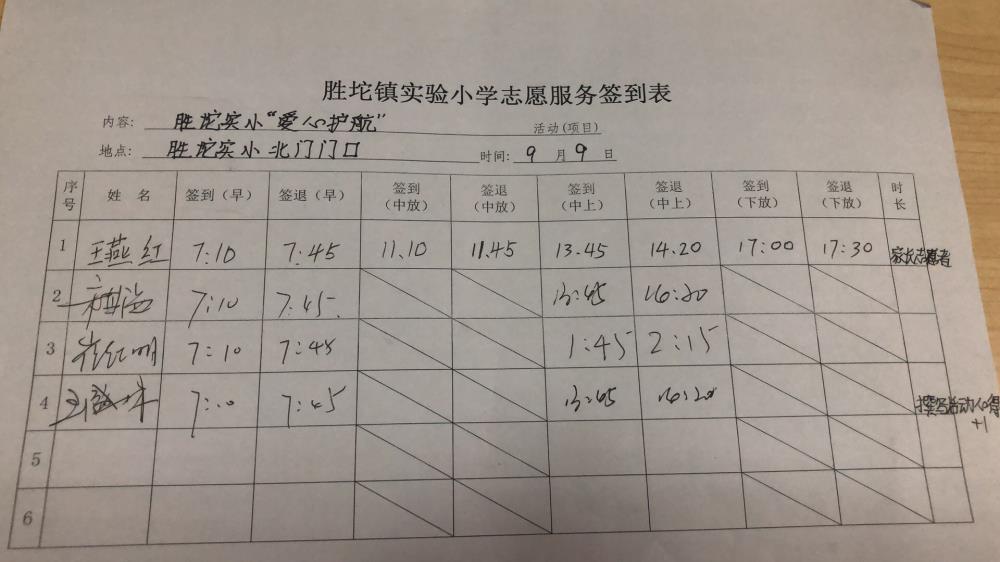 胜坨镇实验小学志愿服务签到表
内容: 胜坨实小“爱心护航” 活动(项目)
地点: 胜坨实小北门门口 时间: 9 月 9 日
序号 姓名 签到（早） 签退（早） 签到（中放） 签退（中放） 签到（中上） 签退（中上） 签到（下放） 签退（下放） 时长
1 王燕红 7:10 7:45 11.10 11.45 13.45 14.20 17:00 17:30 家长志愿者
2 7:10 7:45 13:45 16:20
3 崔红明 7:10 7:45 1:45 2:15
4 7:10 7:45 13:45 16:20 撰写活动心得
+1
5
6